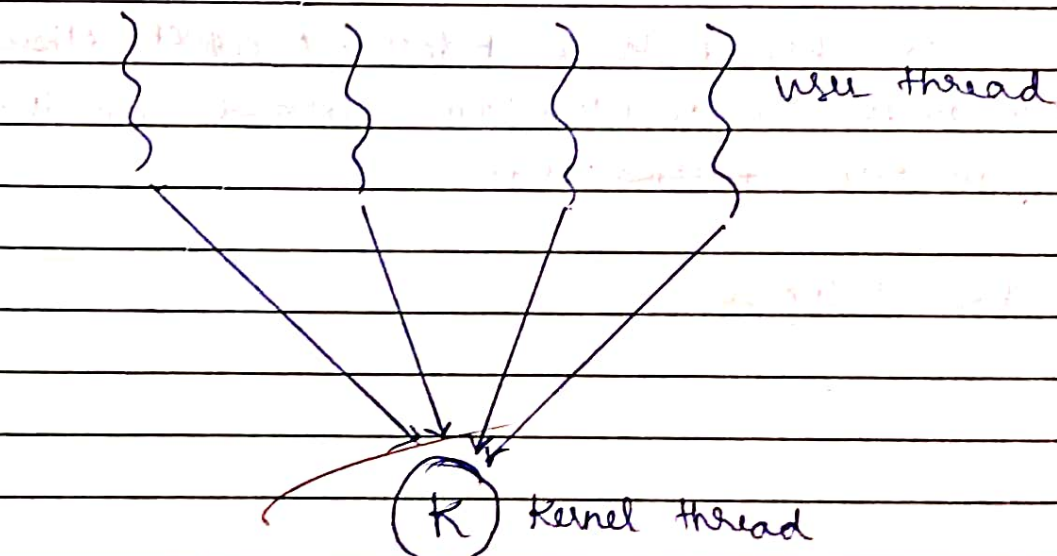 user thread
K Kernel thread